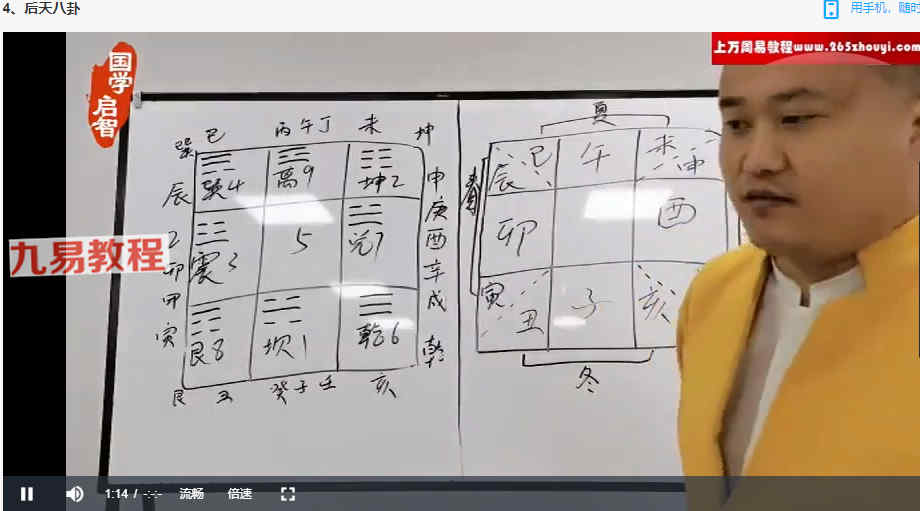 4、后天八卦
用手机，随时
国学
启智
上万周易教程www.265zhouyi.com
九易教程
巽 巳 丙 午 丁 未 坤
辰 巽4 离9 坤2 申
庚
乙 震3 5 兑7 酉
卯 辛
甲 戌
寅 艮8 坎1 乾6 乾
艮 丑 癸 子 壬 亥
夏
春
辰 巳 午 未 申
卯 酉
寅 丑 子 亥
冬
1:14 / -:-:-
流畅
倍速